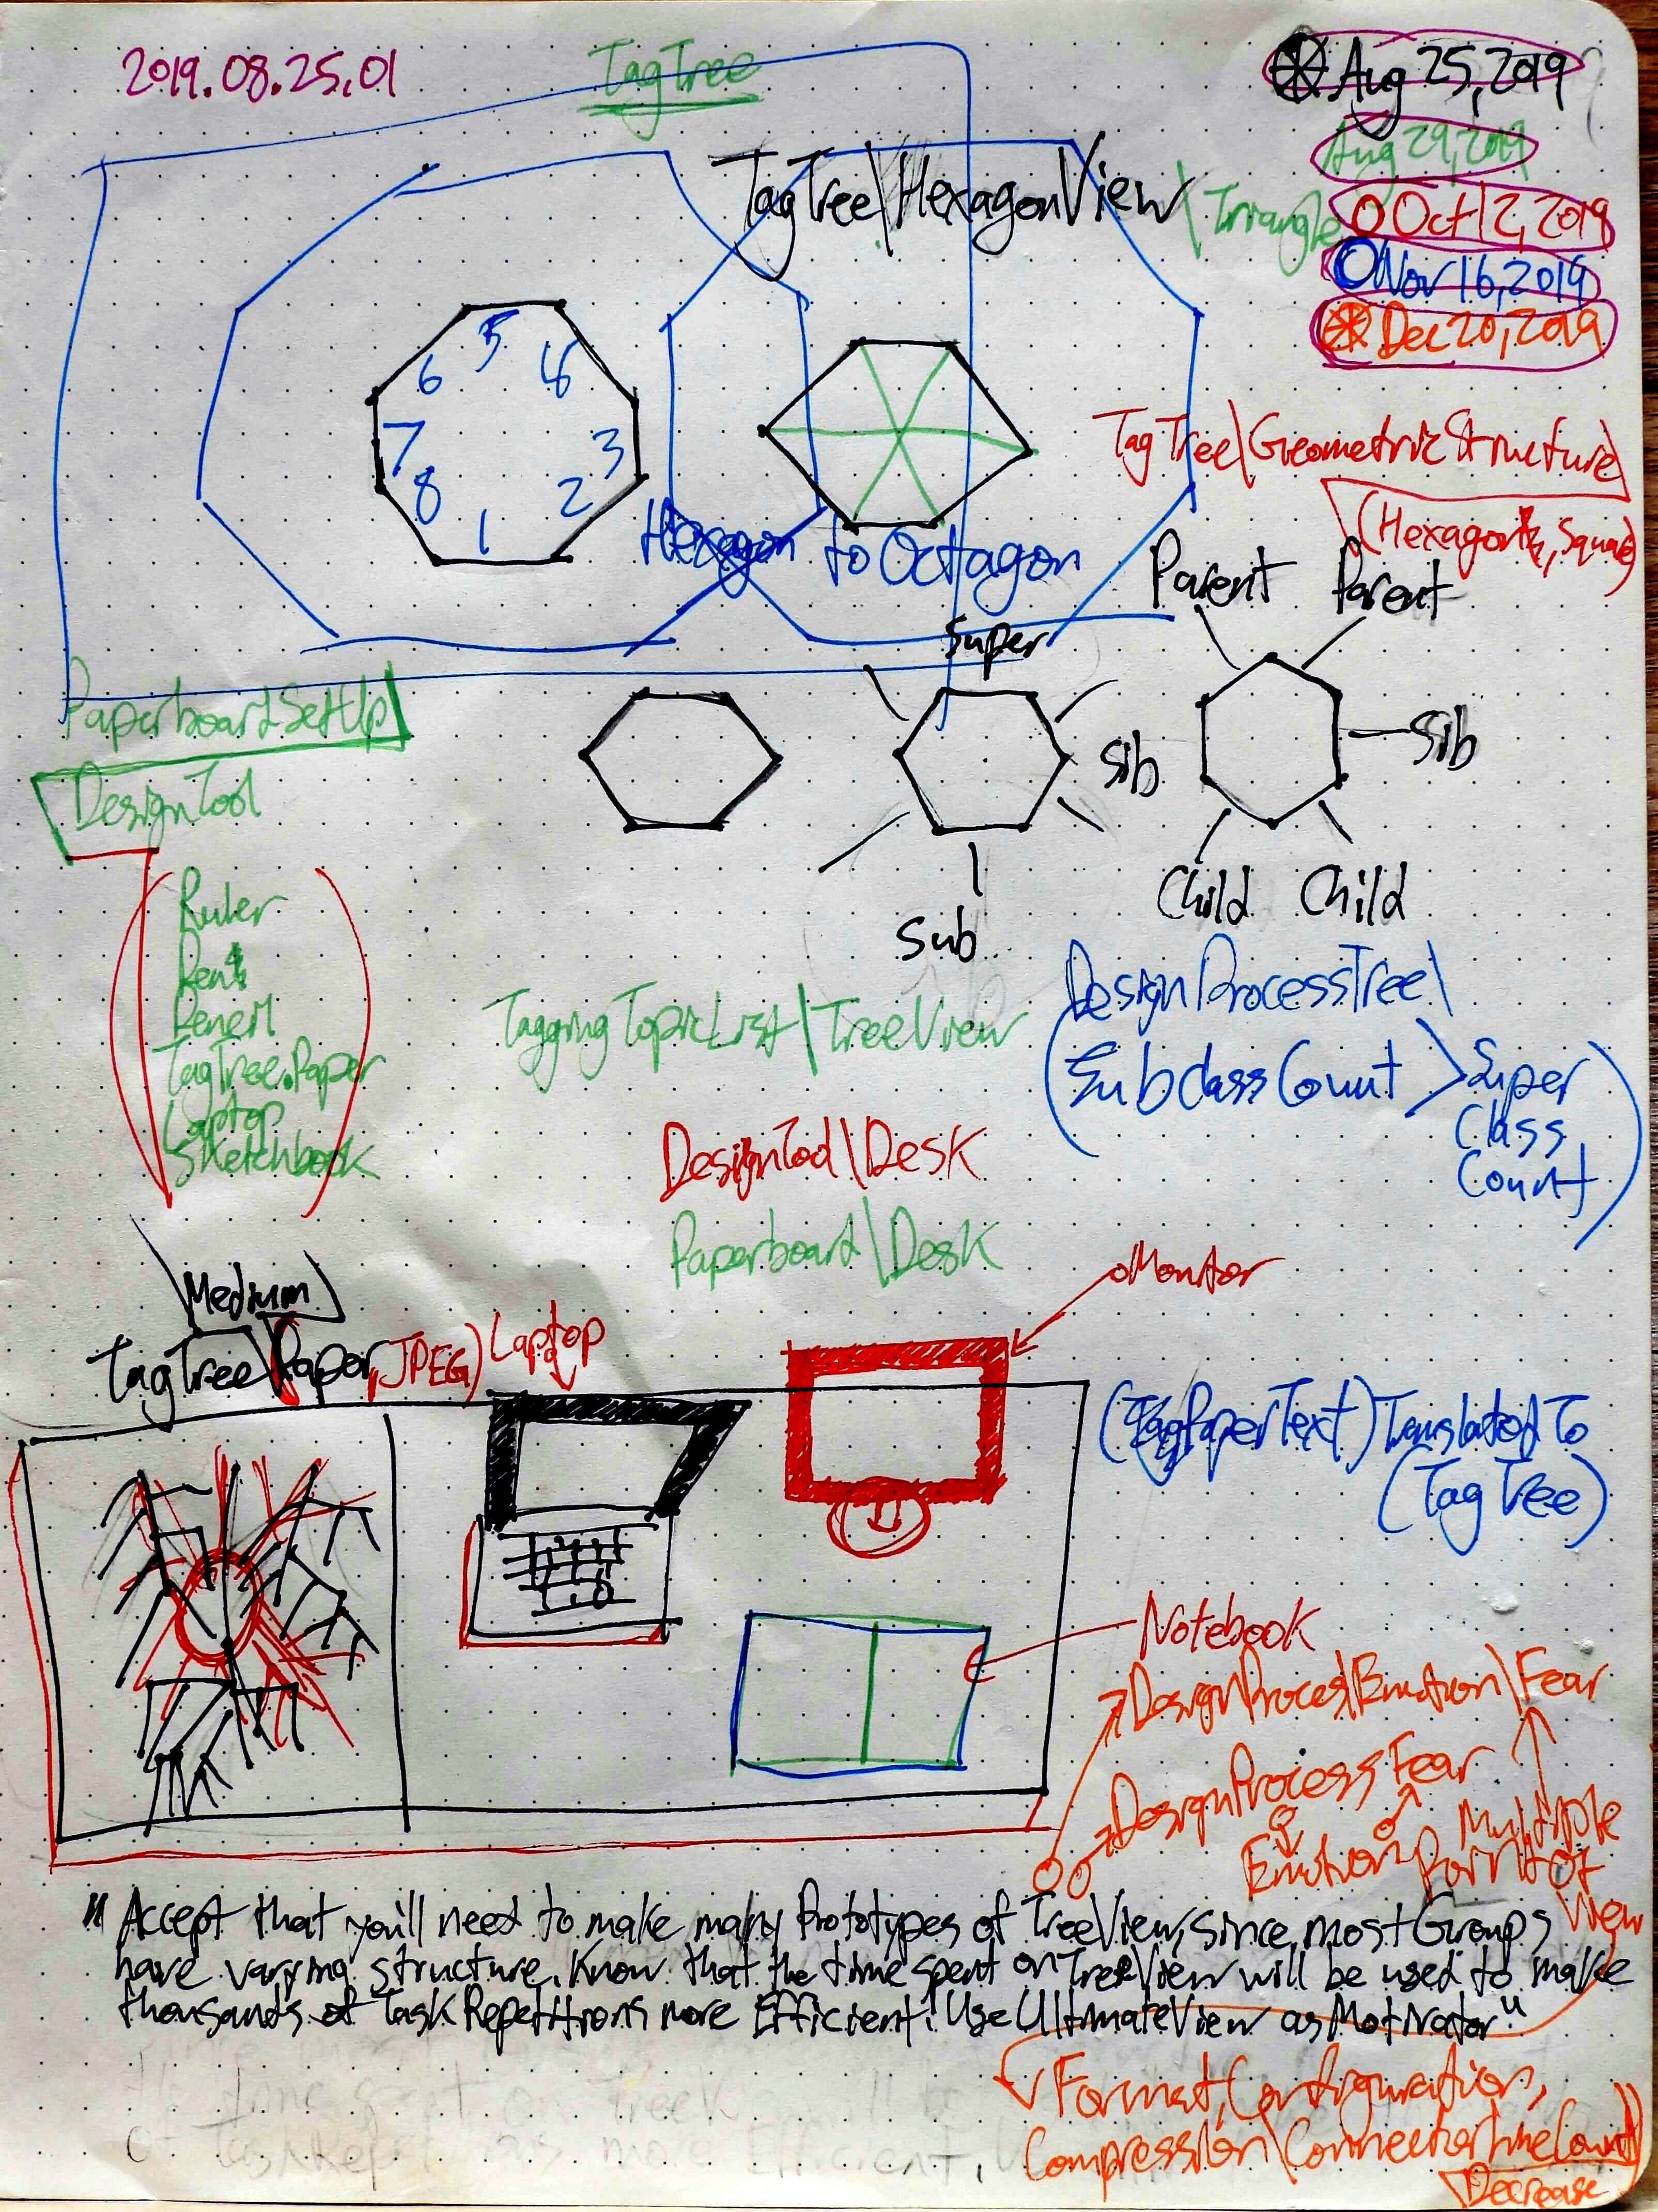 2019.08.25.01
TagTree
Aug 25, 2019
Aug 29, 2019
Oct 12, 2019
Nov 16, 2019
Dec 20, 2019
TagTree\HexagonView\Triangle
5
6
4
7
3
8
2
1
TagTree\GeometricStructure
(Hexagon, Square)
Hexagon to Octagon
Parent Parent
Super
Sib
Sib
Child Child
Sub
PaperboardSetUp
DesignTool
Ruler
Pen
Pencil
TagTree.Paper
Laptop
Sketchbook
TaggingTopicList\TreeView
DesignProcessTree\
(SubclassCount > Super
Class
Count)
DesignTool\Desk
Paperboard\Desk
Monitor
Medium
TagTree\Paper, JPEG)
Laptop
(TagPaperText) TranslatedTo
(TagTree)
Notebook
DesignProcess\Emotion\Fear
DesignProcessFear
Emotion
Multiple
PointOf
View
"Accept that you'll need to make many Prototypes of TreeView, since most Groups
have varying structure. Know that the time spent on TreeView will be used to make
thousands of TaskRepetitions more Efficient! Use UltimateView as Motivator"
Format, Configuration,
Compression\ConnectorLineCount)
Decrease